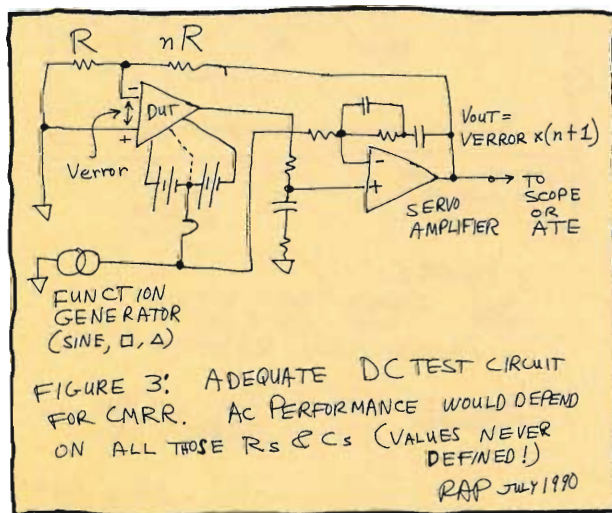 R
nR
-
DUT
+
Verror
VOUT =
VERROR × (n+1)
-
+
SERVO
AMPLIFIER
TO
SCOPE
OR
ATE
FUNCTION
GENERATOR
(SINE, □, △)
FIGURE 3: ADEQUATE DC TEST CIRCUIT
FOR CMRR. AC PERFORMANCE WOULD DEPEND
ON ALL THOSE Rs & Cs (VALUES NEVER
DEFINED!)
RAP JULY 1990